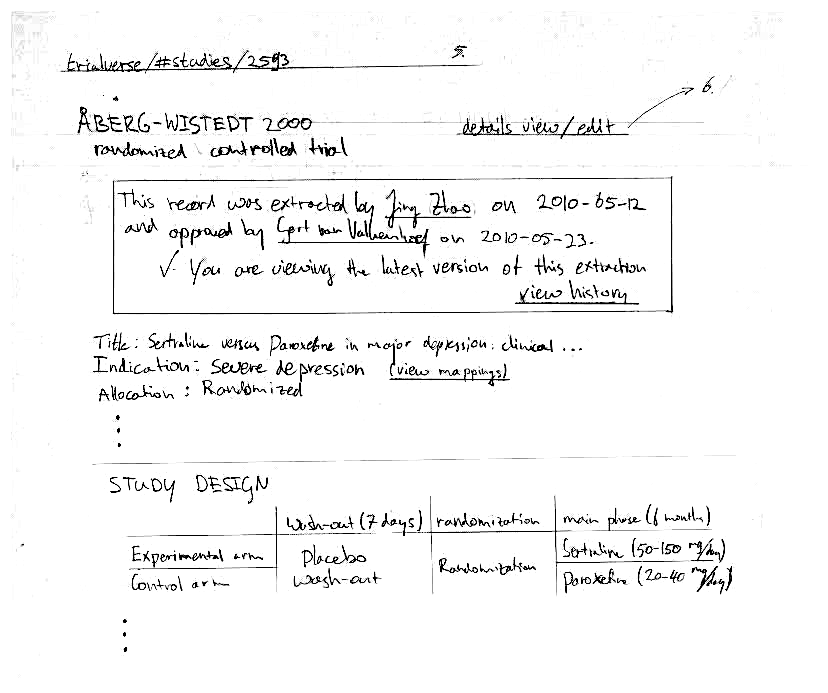 trialverse/#studies/2593
5.
6.
ÅBERG-WISTEDT 2000
details view/edit
randomized controlled trial
This record was extracted by Jing Zhao on 2010-05-12
and approved by Gert van Valkenhoef on 2010-05-23.
✓ You are viewing the latest version of this extraction
view history
Title: Sertraline versus Paroxetine in major depression: clinical ...
Indication: Severe depression (view mappings)
Allocation: Randomized
STUDY DESIGN
Wash-out (7 days) randomization main phase (6 months)
Experimental arm Placebo Sertraline (50-150 mg/day)
Randomization
Control arm wash-out Paroxetine (20-40 mg/day)